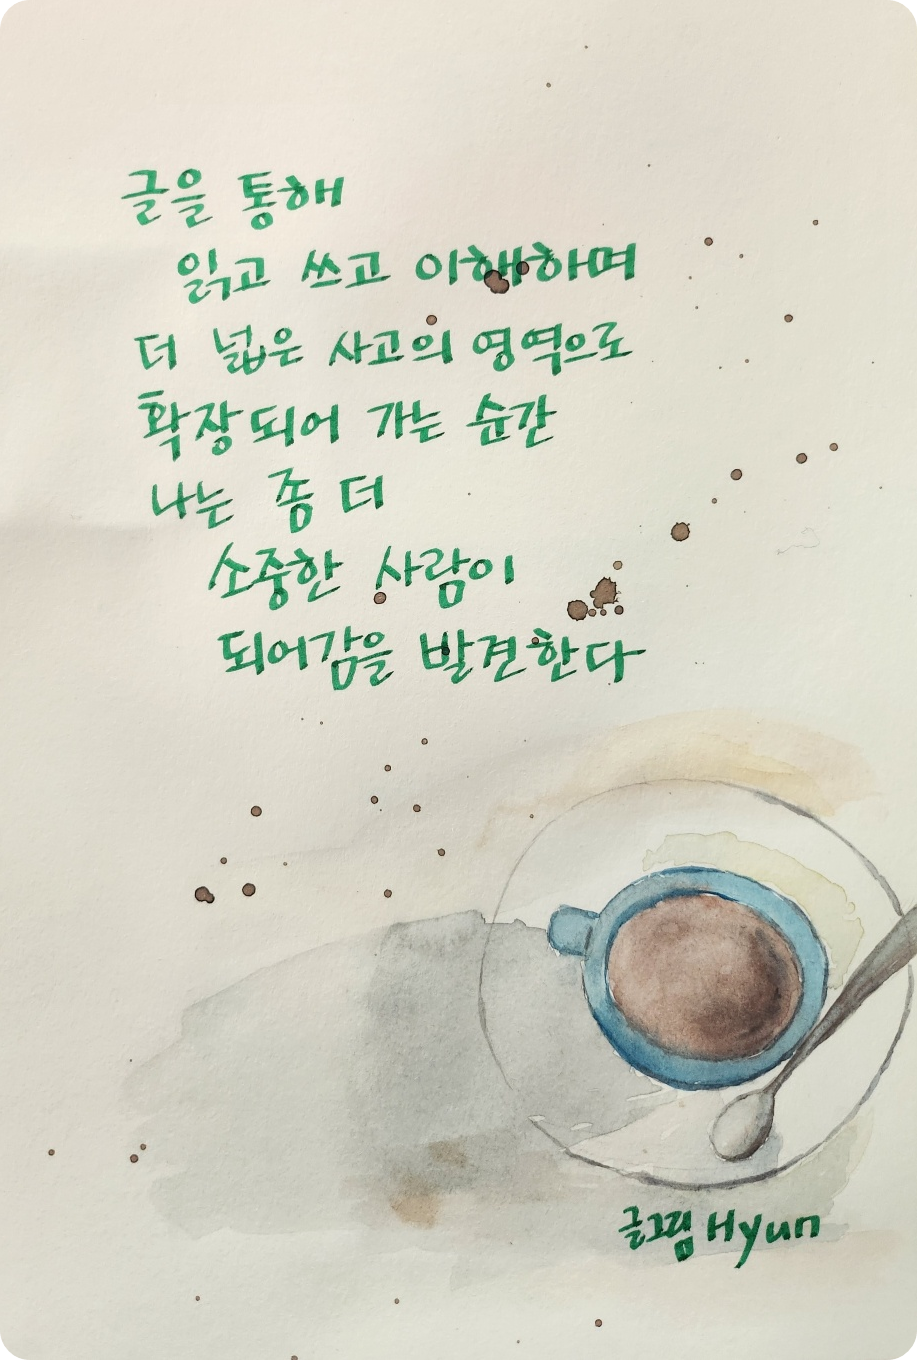 글을 통해
읽고 쓰고 이해하며
더 넓은 사고의 영역으로
확장되어 가는 순간
나는 좀 더
소중한 사람이
되어감을 발견한다
글그림 Hyun